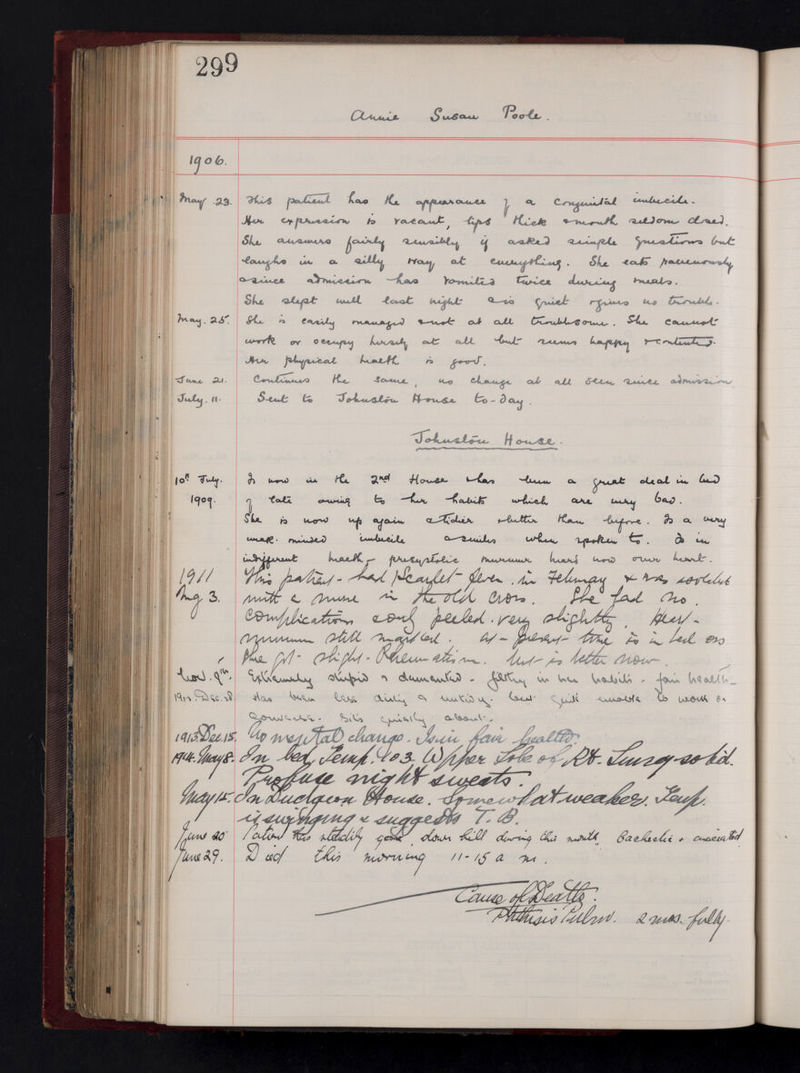 299
Annie Susan Poole.
1906.
May .23. This patient has the appearance of a Congenital imbecile.
Her expression is vacant, lips thick & mouth seldom closed.
She answers fairly sensibly if asked simple questions but
laughs in a silly way at everything. She eats ravenously
& since admission has vomited twice during meals.
She slept well last night & is quiet & gives no trouble.
May. 25. She is easily managed & not at all troublesome. She cannot
work or occupy herself at all but seems happy & contented.
Her physical health is good.
June 21. Continues the same, no change at all seen since admission.
July. 11. Sent to Johnston House to-day.
Johnston House.
10th July. Is now in the 2nd House & has been a great deal in bed
1909. of late owing to her habits which are very bad.
She is now up again & tidier & better than before. Is a very
weak-minded imbecile & smiles when spoken to. Is in
indifferent health – presystolic murmur heard now over heart.
1911 This patient - had Scarlet fever in February & was isolated
Aug 3. with a nurse in the old Cross. She had no
complications only peeled very slightly. Heart-
murmur still marked. At - present time is in bed as
she got slight - Rheumatism. but is better now.
Nov. 9th. Extremely stupid & demented - filthy in her habits - fair health -
1912. Dec. 28 Has been less dirty & untidy. but quite unable to work or
converse. Sits quietly about.
1913. Dec 15. No mental change. Is in fair health.
1914. May 8. In bed, Temp. 103. Upper Lobe of Rt. Lung solid.
Profuse night sweats.
May 15. In Dudgeon House. Somewhat weaker. Temp.
is swinging & suggests T. B.
June 20 Patient has steadily gone down hill during this month. Cachectic & emaciated
June 29. Died this morning 11-15 a m.
Cause of Death.
Phthisis Pulm. 2 mos. fully.